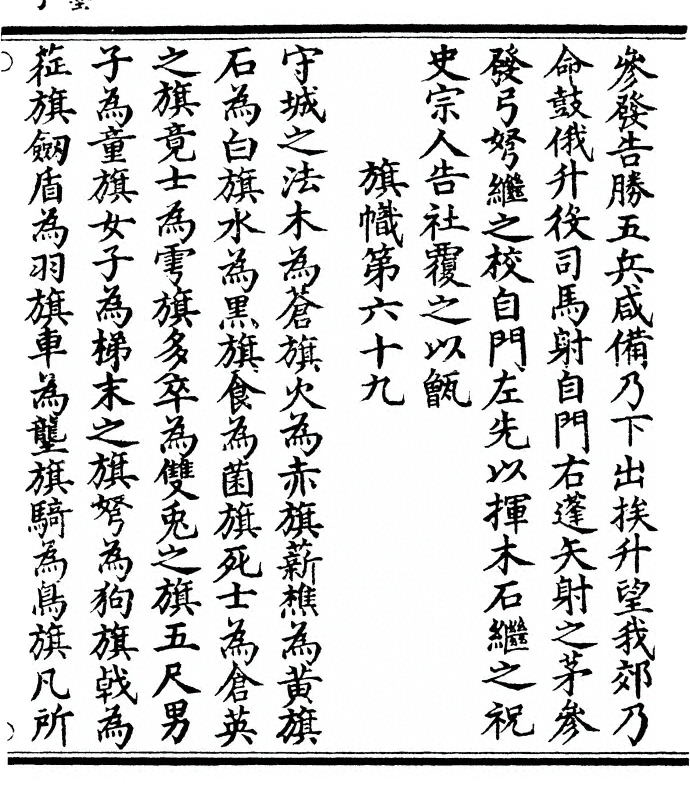 參發告勝五兵咸備乃下出挨升望我郊乃
命鼓俄升役司馬射自門右蓬矢射之茅參
發弓弩繼之校自門左先以揮木石繼之祝
史宗人告社覆之以甑
旗幟第六十九
守城之法木為蒼旗火為赤旗薪樵為黃旗
石為白旗水為黑旗食為菌旗死士為倉英
之旗竟士為雩旗多卒為雙兎之旗五尺男
子為童旗女子為梯末之旗弩為狗旗戟為
旗劔盾為羽旗車為龍旗騎為鳥旗凡所